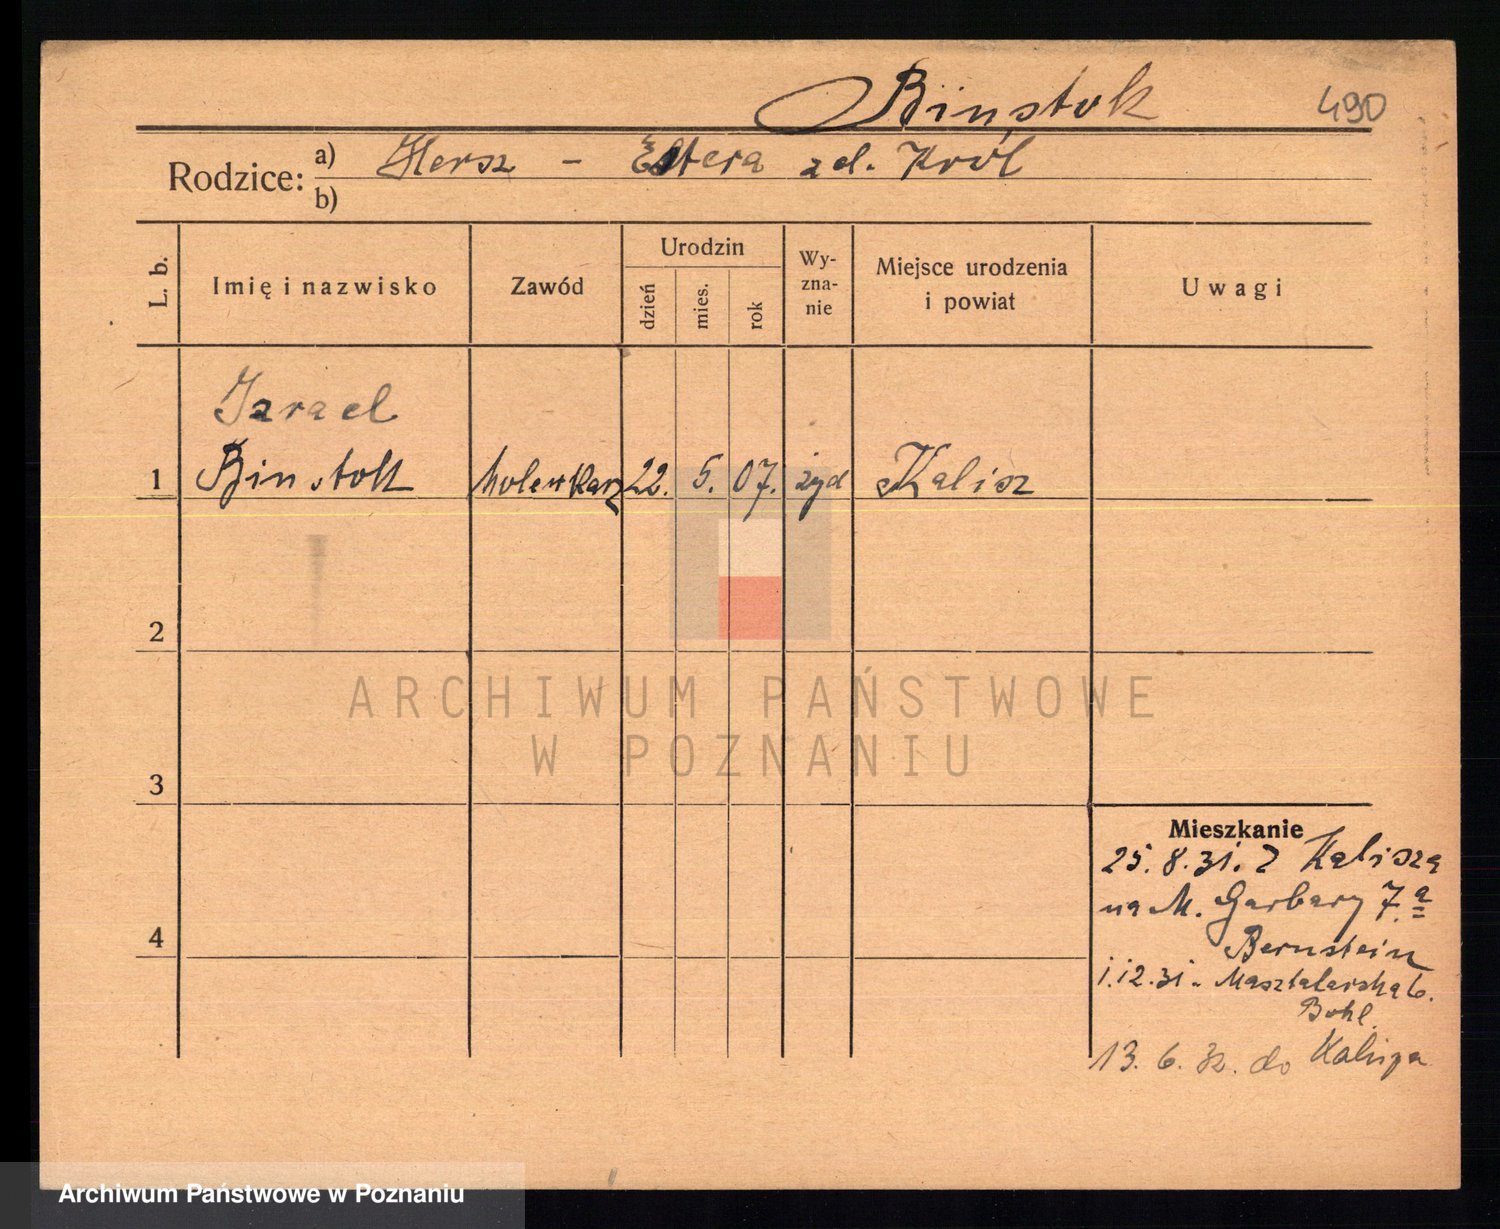 Binstok 490
Rodzice: a) Hersz - Estera zd. Król
b)
L. b.
Imię i nazwisko
Zawód
Urodzin
dzień
mies.
rok
Wy-
zna-
nie
Miejsce urodzenia
i powiat
Uwagi
Izrael
1 Binstok 22. 5. 07. żyd Kalisz
2
3
4
Mieszkanie
25. 8. 31. z Kalisza
na M. Garbary 7.a
Bernstein
1.12.31. Masztalarska 6.
Bohl.
13. 6. 32. do Kalisza
ARCHIWUM PAŃSTWOWE
W POZNANIU
Archiwum Państwowe w Poznaniu